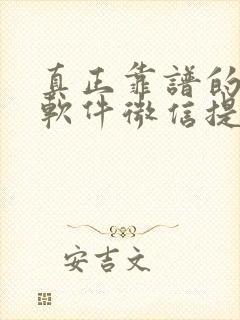 真正靠譜的
軟件微信提
安吉文